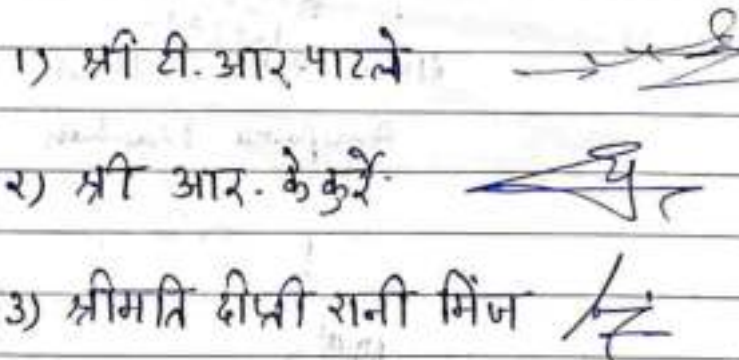 १) श्री टी. आर. पाटले
२) श्री आर. के. कुर्रे
३) श्रीमति दीप्ती रानी मिंज